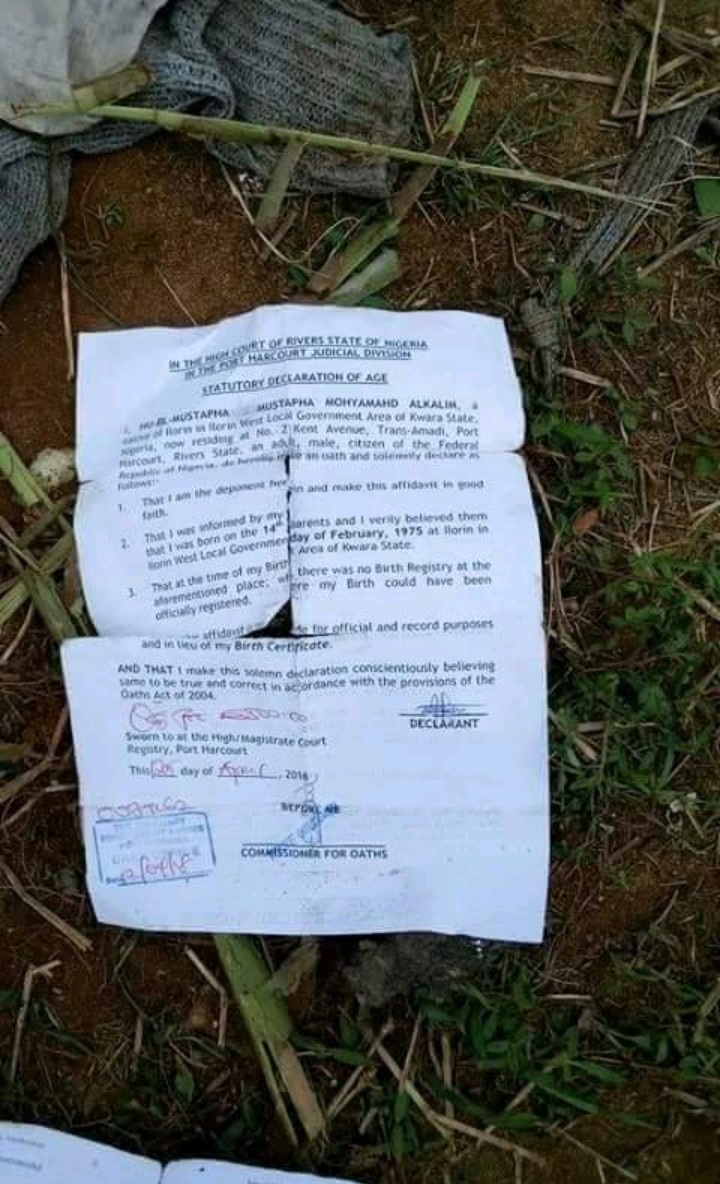 IN THE HIGH COURT OF RIVERS STATE OF NIGERIA
IN THE PORT HARCOURT JUDICIAL DIVISION
STATUTORY DECLARATION OF AGE
MUSTAPHA MUSTAPHA MOHYAMAHD ALKALIM, a
native of Ilorin in Ilorin West Local Government Area of Kwara State,
Nigeria, now residing at No. 2 Kent Avenue, Trans-Amadi, Port
Harcourt, Rivers State, an adult, male, citizen of the Federal
Republic of Nigeria, do hereby make an oath and solemnly declare as
follows:-
1. That I am the deponent herein and make this affidavit in good
faith.
2. That I was informed by my parents and I verily believed them
that I was born on the 14th day of February, 1975 at Ilorin in
Ilorin West Local Government Area of Kwara State.
3. That at the time of my Birth there was no Birth Registry at the
aforementioned place, where my Birth could have been
officially registered.
affidavit for official and record purposes
and in lieu of my Birth Certificate.
AND THAT I make this solemn declaration conscientiously believing
same to be true and correct in accordance with the provisions of the
Oaths Act of 2004.
DECLARANT
Sworn to at the High/Magistrate Court
Registry, Port Harcourt
This day of April, 2016
BEFORE ME
COMMISSIONER FOR OATHS